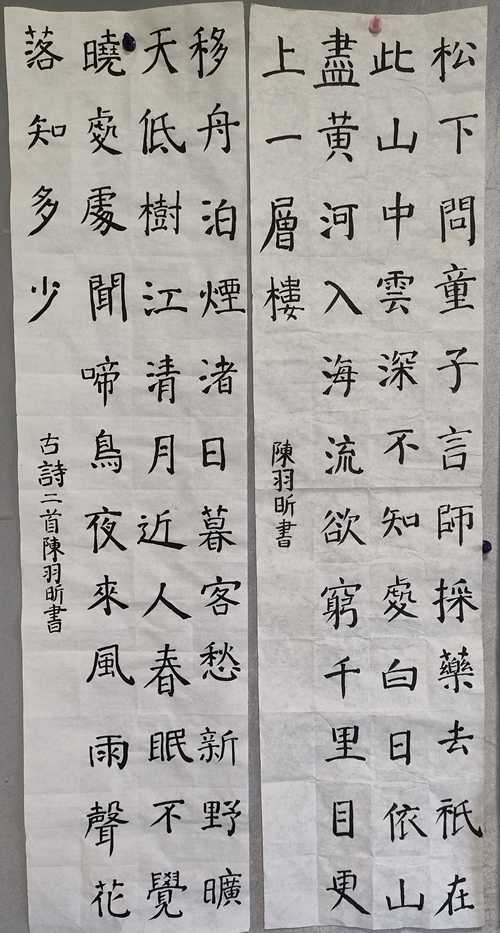 松下問童子言師採藥去祇在
此山中雲深不知處白日依山
盡黃河入海流欲窮千里目更
上一層樓
陳羽昕書
移舟泊煙渚日暮客愁新野曠
天低樹江清月近人春眠不覺
曉處處聞啼鳥夜來風雨聲花
落知多少
古詩二首陳羽昕書